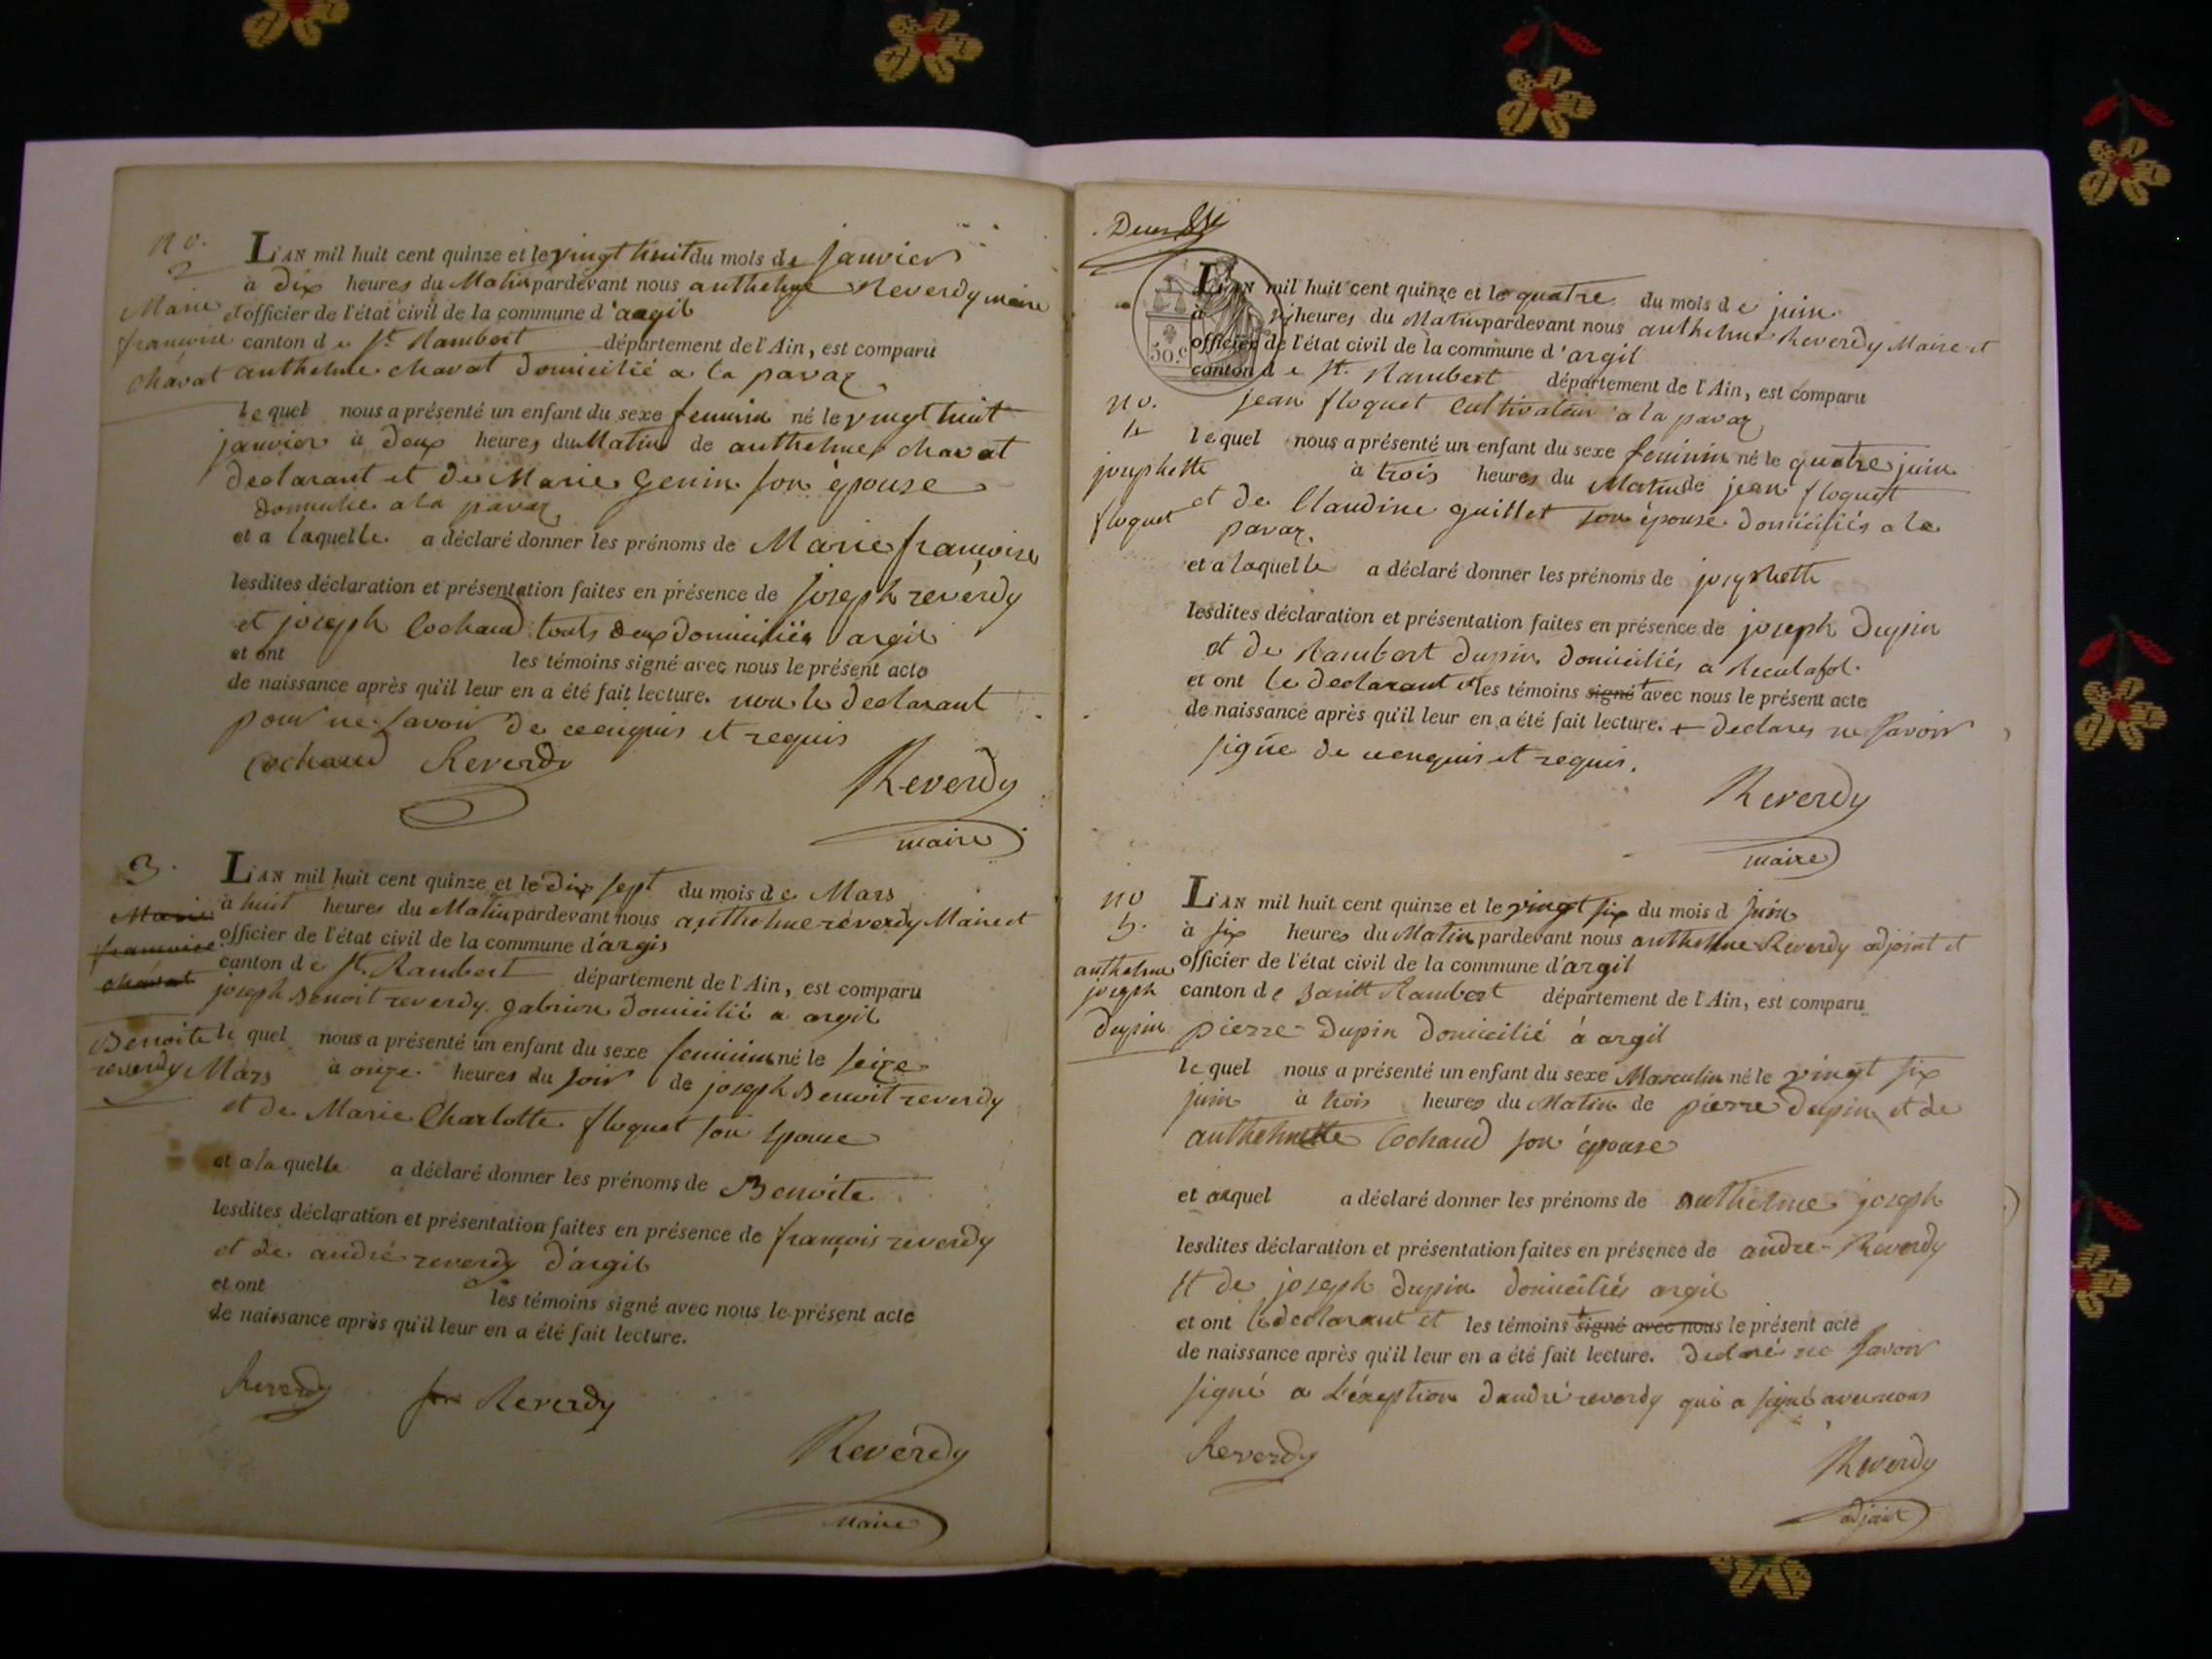 no.
2
Marie
françoise
chavat
L'AN mil huit cent quinze et le vingt huit du mois de janvier
à dix heures du Matin pardevant nous anthelme Reverdy maire
et officier de l'état civil de la commune d'argil
canton de St. Rambert département de l'Ain, est comparu
anthelme chavat domicilié a la pavaz
lequel nous a présenté un enfant du sexe feminin né le vingt huit
janvier à deux heures du Matin de anthelme chavat
declarant et de Marie Genin son épouse
domicilié a la pavaz
et a laquelle a déclaré donner les prénoms de Marie françoise
lesdites déclaration et présentation faites en présence de joseph reverdy
et joseph Cochand touts deux domiciliés argil
et ont les témoins signé avec nous le présent acte
de naissance après qu'il leur en a été fait lecture. non le declarant
pour ne savoir de ce enquis et requis
Cochand Reverdy
Reverdy
maire
3.
Marie
françoise
chavat
Benoite
reverdy
L'AN mil huit cent quinze et le dix sept du mois de Mars
à huit heures du Matin pardevant nous anthelme reverdy Maire et
officier de l'état civil de la commune d'argis
canton de St. Rambert département de l'Ain, est comparu
joseph Benoit reverdy domicilié a argil
le quel nous a présenté un enfant du sexe feminin né le seize
Mars à onze heures du soir de joseph Benoit reverdy
et de Marie Charlotte floquet son épouse
et a la quelle a déclaré donner les prénoms de Benoite
lesdites déclaration et présentation faites en présence de françois reverdy
et de andré reverdy d'argil
et ont les témoins signé avec nous le présent acte
de naissance après qu'il leur en a été fait lecture.
Reverdy Reverdy
Reverdy
maire
Deux
50 c
L'AN mil huit cent quinze et le quatre du mois de juin
à heures du Matin pardevant nous anthelme Reverdy Maire et
officier de l'état civil de la commune d'argil
canton de St. Rambert département de l'Ain, est comparu
no.
4
josephette
floquet
jean floquet Cultivateur a la pavaz
lequel nous a présenté un enfant du sexe feminin né le quatre juin
à trois heures du Matin de jean floquet
et de Claudine guillet son épouse domiciliés a la
pavaz.
et a laquelle a déclaré donner les prénoms de josephette
lesdites déclaration et présentation faites en présence de joseph Dupin
et de Rambert dupin domiciliés a Reculafol.
et ont le declarant et les témoins signé + avec nous le présent acte
de naissance après qu'il leur en a été fait lecture. + declarés ne savoir
signé de ce enquis et requis.
Reverdy
maire
no
5.
anthelme
joseph
dupin
L'AN mil huit cent quinze et le vingt six du mois d juin
à six heures du Matin pardevant nous anthelme Reverdy adjoint et
officier de l'état civil de la commune d'argil
canton de Saint Rambert département de l'Ain, est comparu
pierre Dupin domicilié à argil
le quel nous a présenté un enfant du sexe Masculin né le vingt six
juin à trois heures du Matin de pierre dupin et de
anthelmette Cochand son épouse
et auquel a déclaré donner les prénoms de anthelme joseph
lesdites déclaration et présentation faites en présence de andré Reverdy
et de joseph dupin domiciliés argil
et ont le declarant et les témoins signé avec nous le présent acte
de naissance après qu'il leur en a été fait lecture. declaré ne savoir
signé a l'éxeption dandré reverdy qui a signé avec nous
Reverdy
Reverdy
adjoint